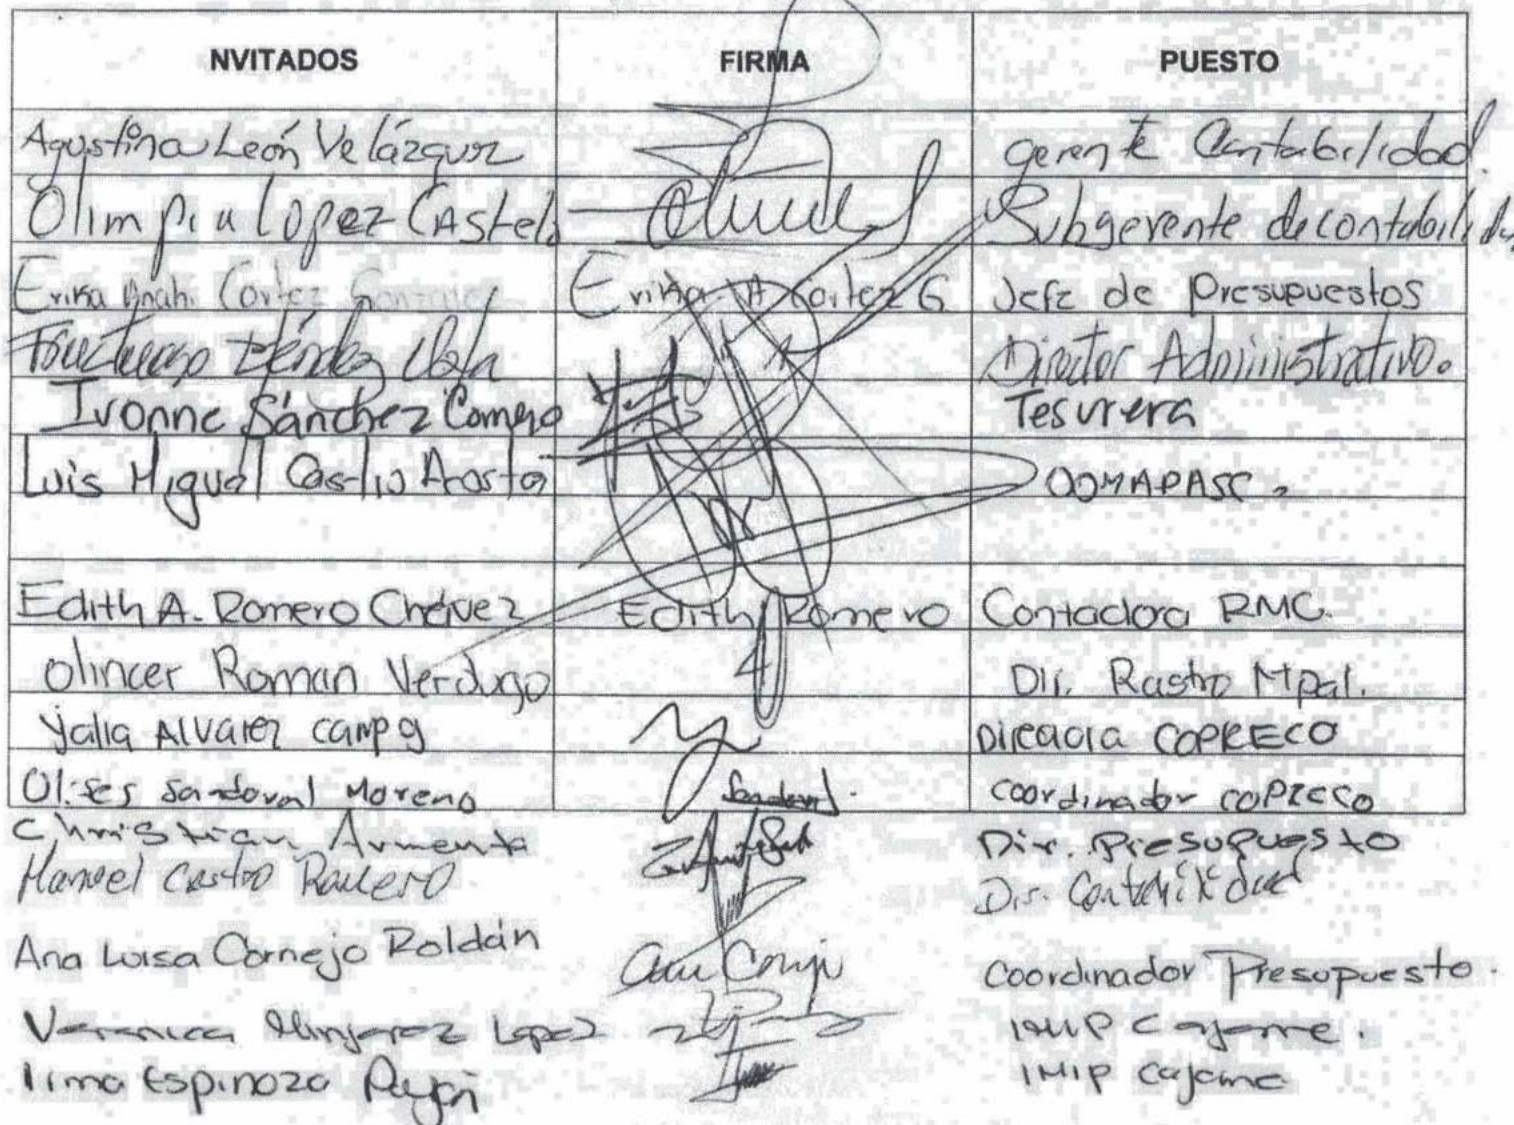 NVITADOS FIRMA PUESTO
Agustina León Velázquez Gerente Contabilidad
Olimpia Lopez Castelo Subgerente de contabilidad
Erika Anahi Cortez Gonzalez Erika A Cortez G Jefe de Presupuestos
Méndez Director Administrativo.
Ivonne Sánchez Tesurera
Luis Miguel Castro Acosta OOMAPASC.
Edith A. Romero Chávez Edith Romero Contadora RMC.
Olincer Roman Verdugo Dir. Rastro Mpal.
Yalia Alvarez campo Directora COPRECO
Ulises Sandoval Moreno Sandoval. Coordinador COPRECO
Christian Armenta Dir. Presupuesto
Manuel Castro Dir. Contabilidad
Ana Luisa Cornejo Roldán Coordinador Presupuesto.
Veronica Minjarez Lopez IMIP Cajeme.
Irma Espinoza Payán IMIP Cajeme